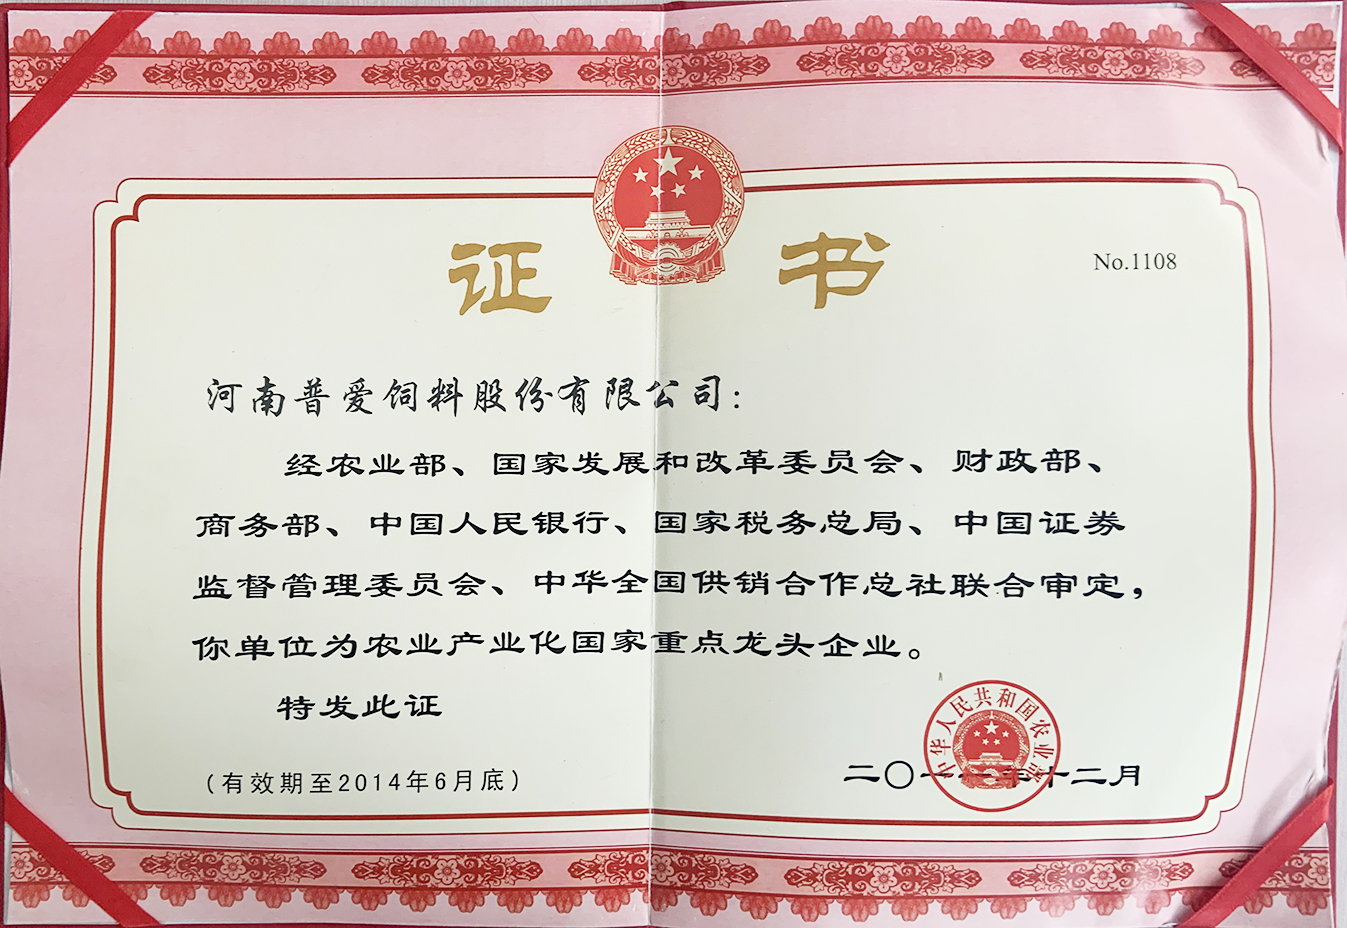 证 书
No.1108
河南普爱饲料股份有限公司：
经农业部、国家发展和改革委员会、财政部、
商务部、中国人民银行、国家税务总局、中国证券
监督管理委员会、中华全国供销合作总社联合审定，
你单位为农业产业化国家重点龙头企业。
特发此证
中华人民共和国农业部
（有效期至2014年6月底）
二〇一一年十二月